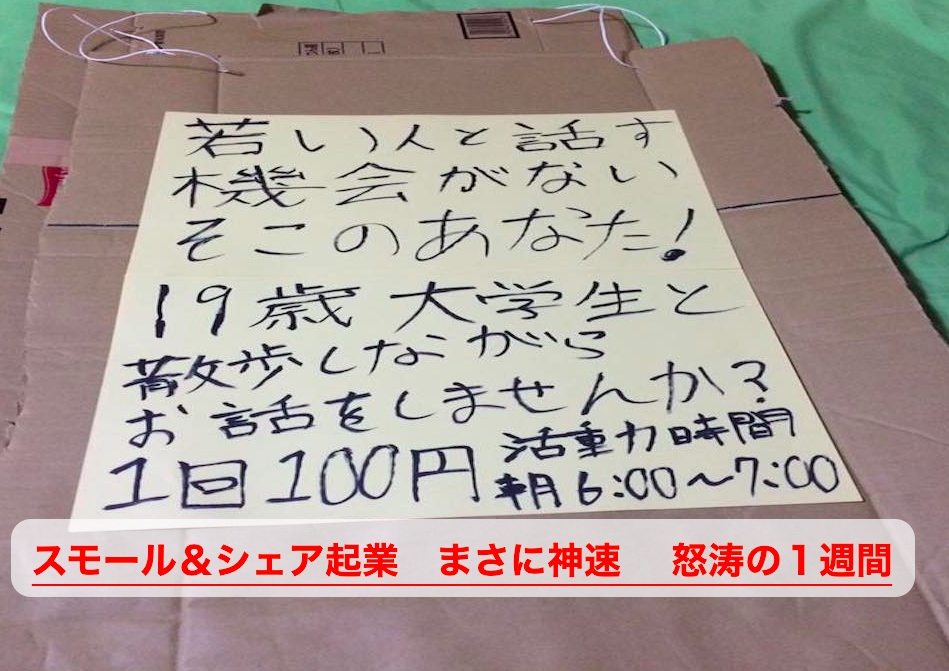 若い人と話す
機会がない
そこのあなた!
19歳 大学生と
散歩しながら
お話をしませんか?
1回100円
活動時間
朝6:00~7:00
スモール&シェア起業 まさに神速 怒涛の1週間